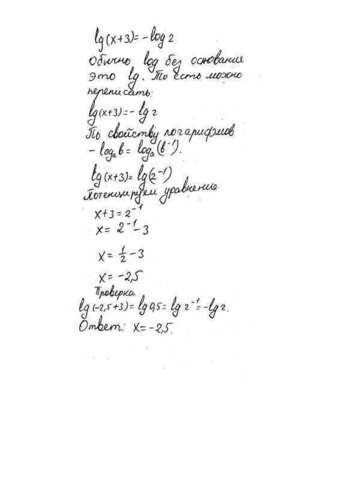 lg(x+3)=-log 2
Обычно log без основания
это lg. То есть можно
переписать:
lg(x+3)=-lg 2
По свойству логарифмов
-logₐb=logₐ(b⁻¹).
lg(x+3)=lg(2⁻¹)
Потенцируем уравнение
x+3=2⁻¹
x= 2⁻¹-3
x= 1/2 -3
x=-2,5
Проверка
lg(-2,5+3)=lg 0,5=lg 2⁻¹=-lg 2.
Ответ: x=-2,5.